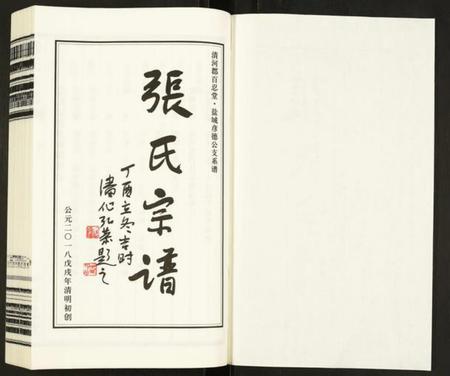 清河郡百忍堂·盐城彦德公支系谱
張氏宗譜
丁酉立冬吉时
潘心弘恭题之
公元二〇一八戊戌年清明初创